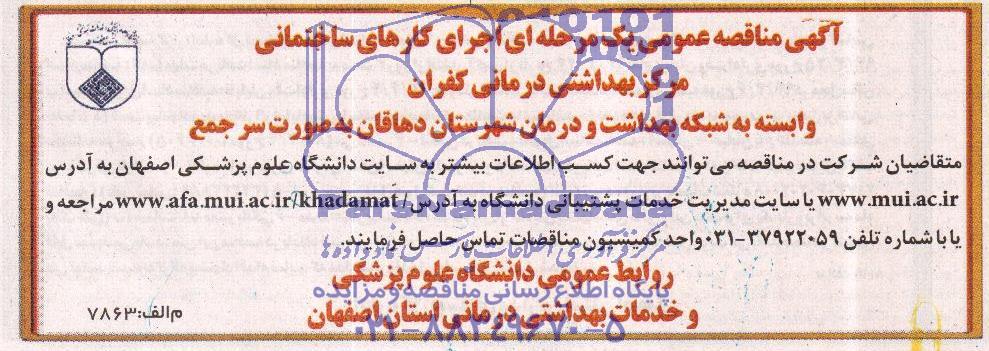 آگهی مناقصه عمومی یک مرحله ای اجرای کارهای ساختمانی
مرکز بهداشتی درمانی کفران
وابسته به شبکه بهداشت و درمان شهرستان دهاقان به صورت سر جمع
متقاضیان شرکت در مناقصه می توانند جهت کسب اطلاعات بیشتر به سایت دانشگاه علوم پزشکی اصفهان به آدرس
www.mui.ac.ir یا سایت مدیریت خدمات پشتیبانی دانشگاه به آدرس /www.afa.mui.ac.ir/khadamat مراجعه و
یا با شماره تلفن ۳۷۹۲۲۰۵۹-۰۳۱ واحد کمیسیون مناقصات تماس حاصل فرمایند.
روابط عمومی دانشگاه علوم پزشکی
و خدمات بهداشتی درمانی استان اصفهان
م الف: ۷۸۶۳
ParsNamadData
پایگاه اطلاع رسانی مناقصه و مزایده
۰۲۱-۸۸۳۴۹۶۷۰-۵